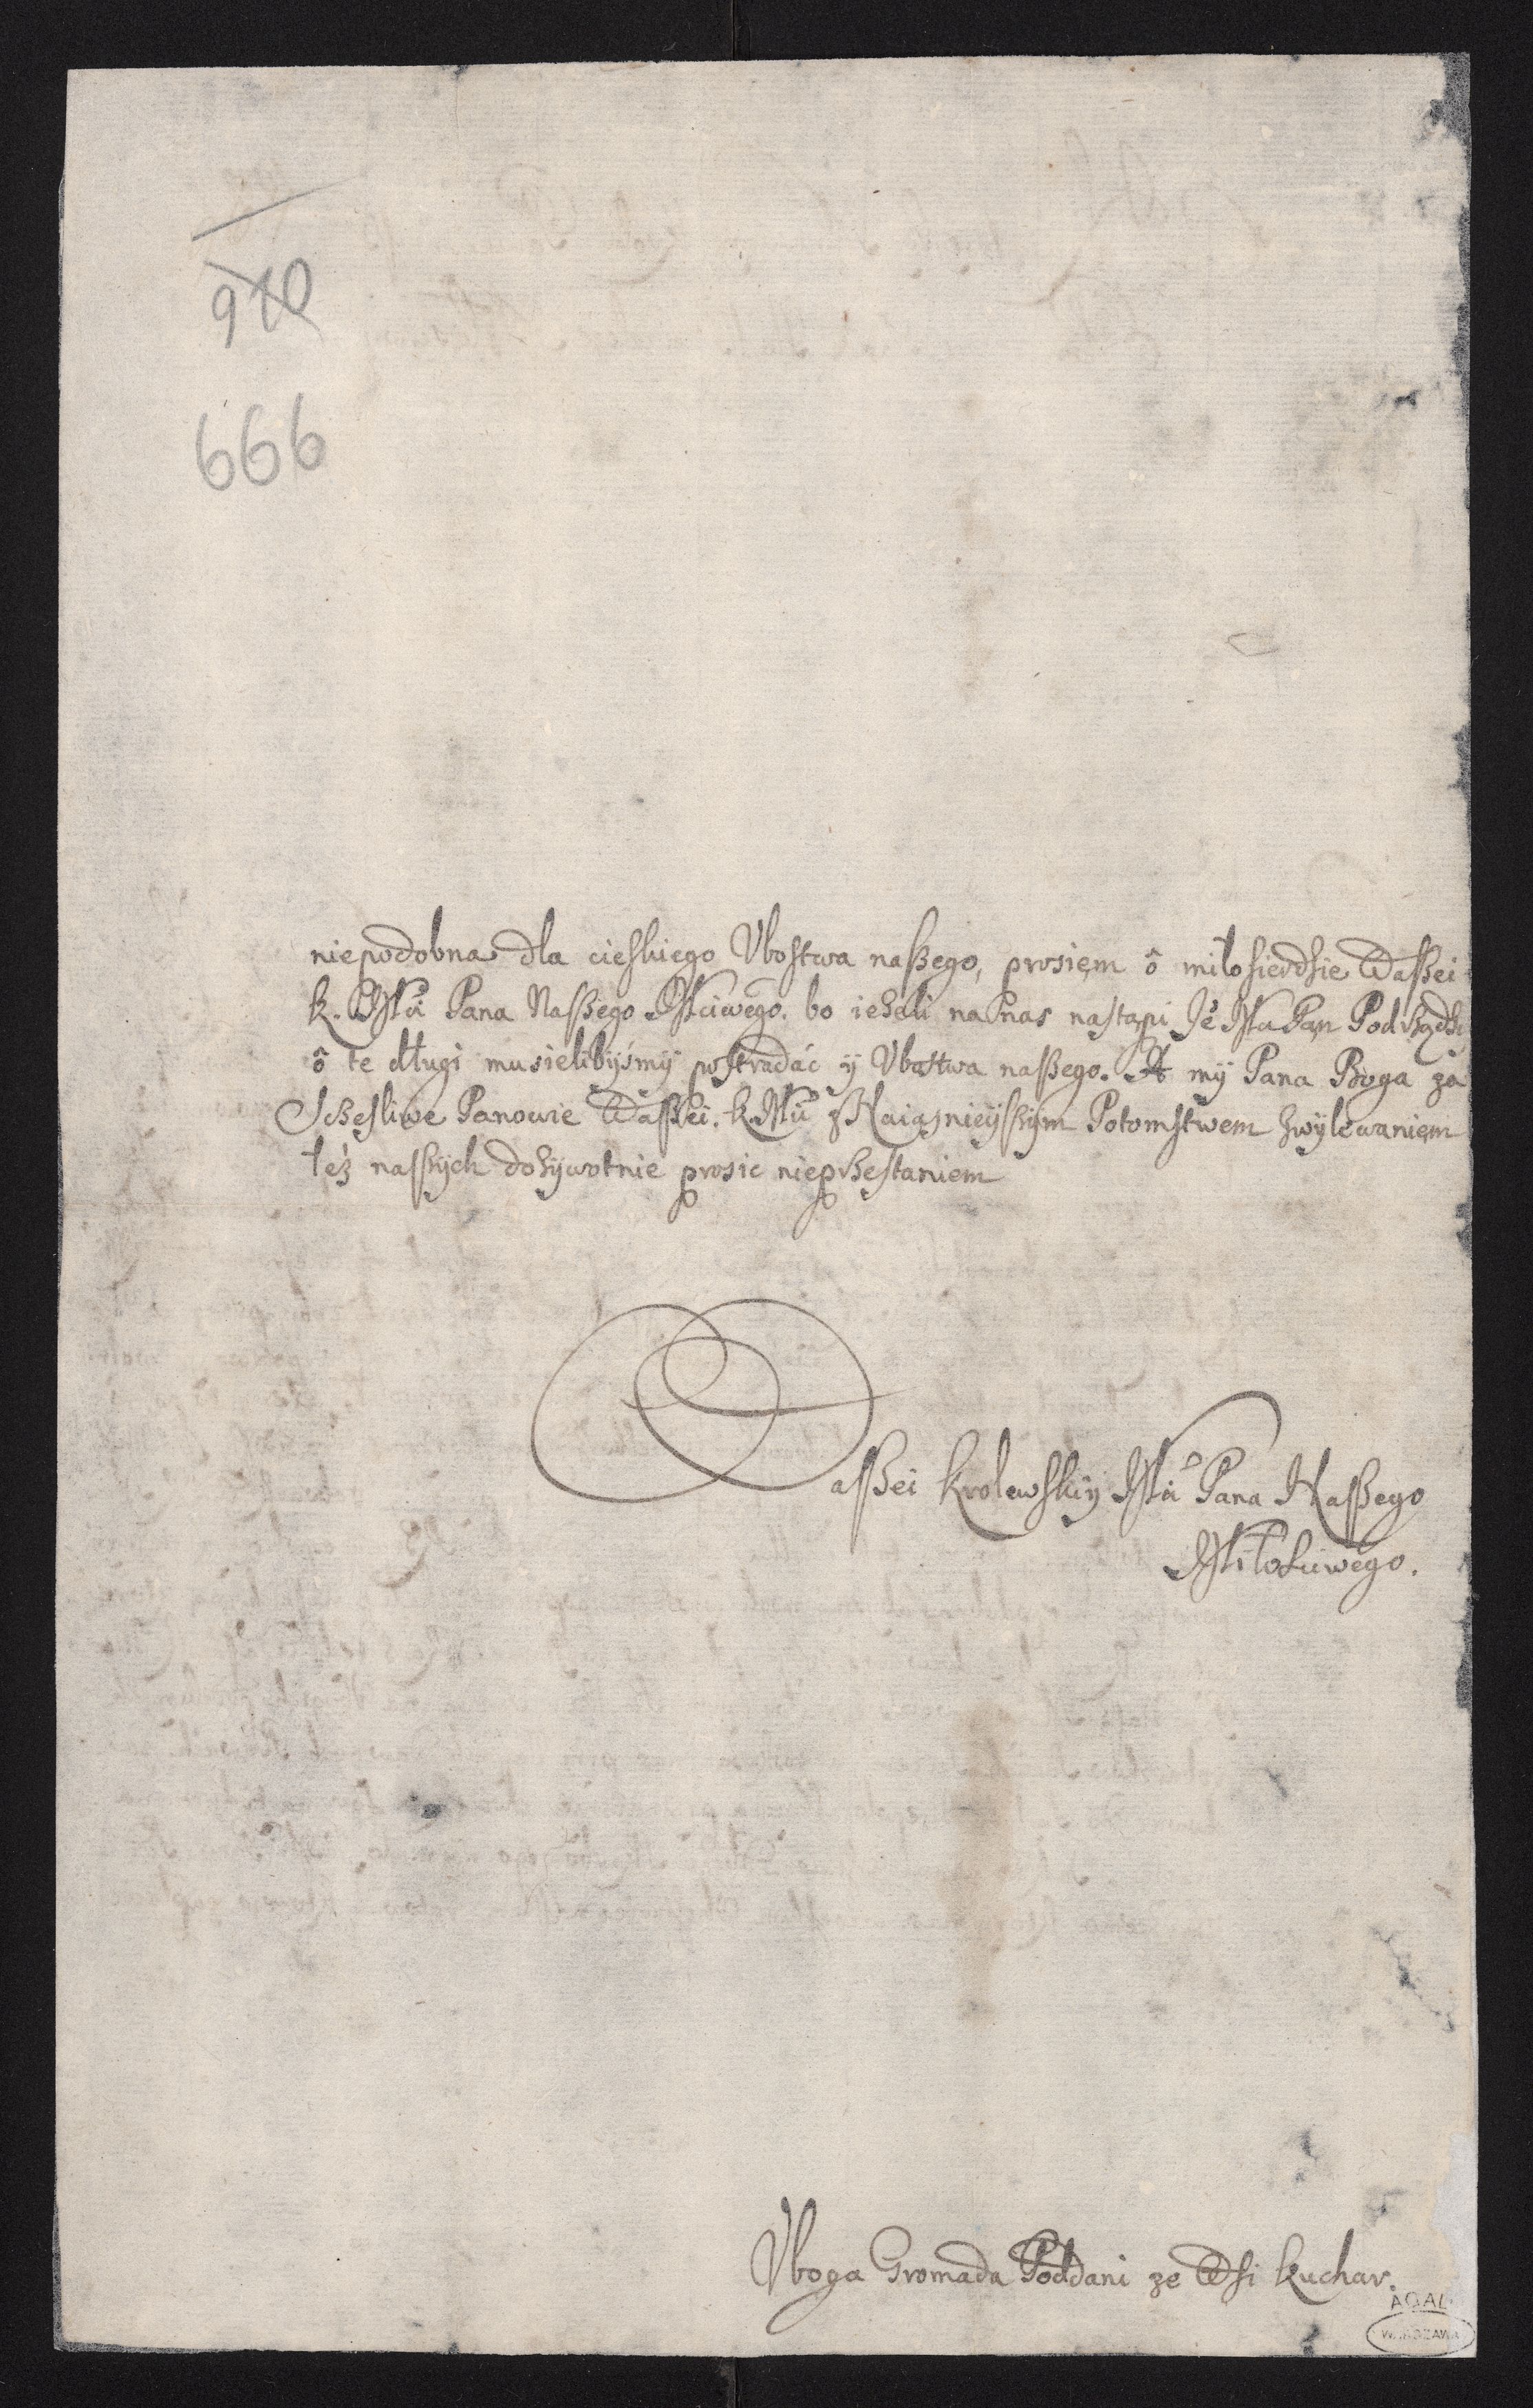 970
666
niepodobna dla cieskiego Vbostwa naßego, prosiem ô miłosierdsie Waßei
K. Mći Pana Naßego Mściwego. bo ieżeli na nas nastąpi Je Mći Pan Podrządci
ô te długi musielibÿsmÿ postradać ÿ Vbostwa naßego. A mÿ Pana Boga za
Scżesliwe Panowie Waßei. K Mći z Naiasnieÿßÿm Potomstwem zwÿlewaniem
łéz naßÿch dożÿwotnie prosic nieprżestaniem
Waßei Krolewskiÿ Mći Pana Naßego
Miłosciwego.
Vboga Gromada Poddani ze Wsi Kuchar.
AGAD
WARSZAWA